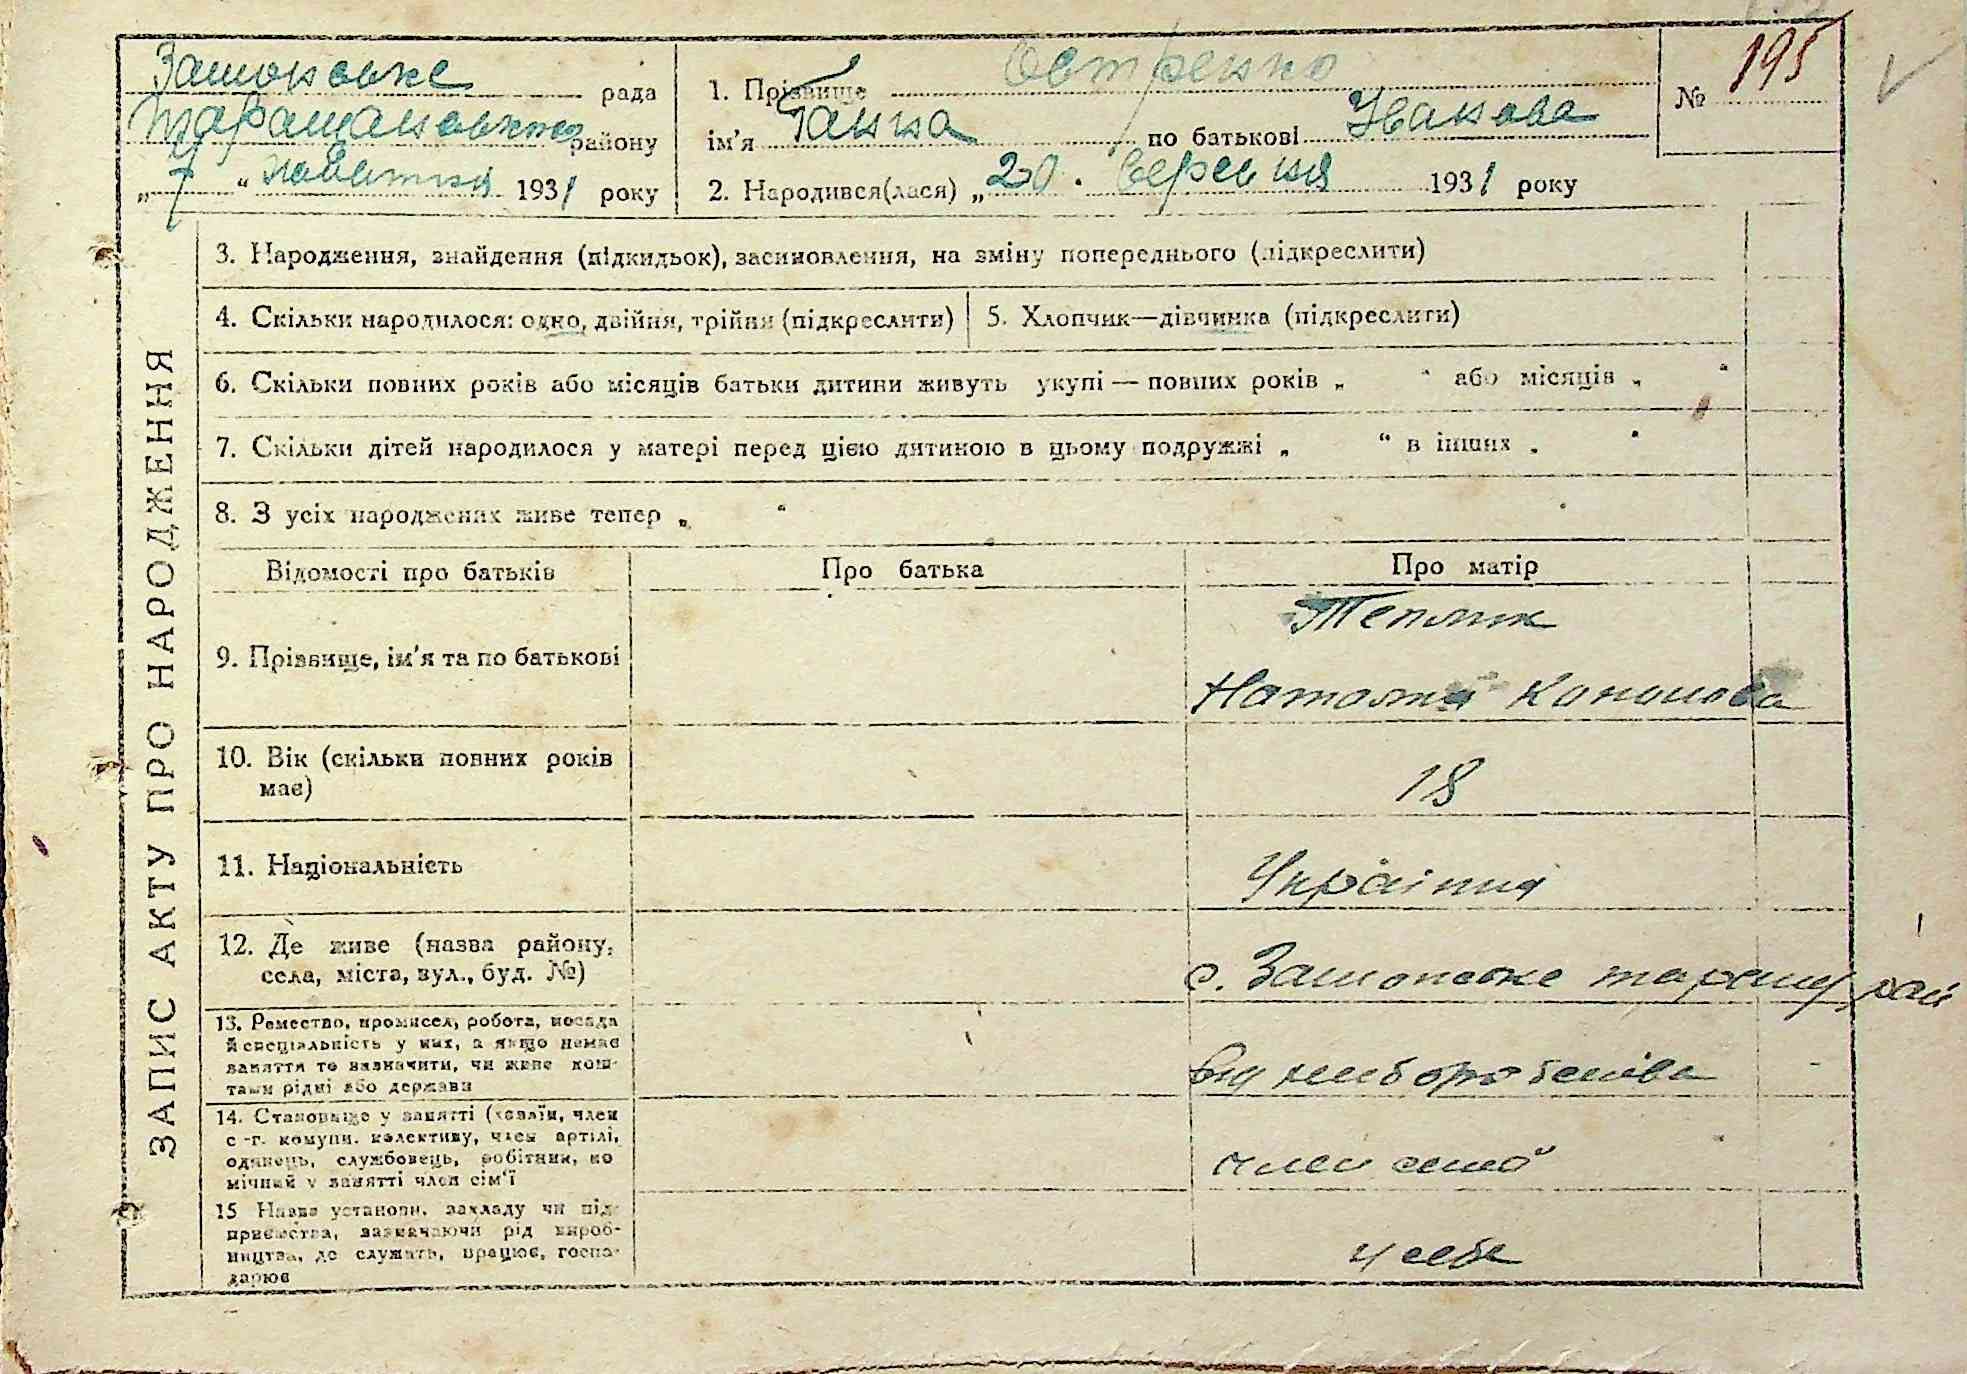 рада
району
„7“ 1931 року
1. Прізвище Остренко
ім'я Ганна по батькові Иванова
2. Народився(лася) „20. Вересня 1931 року
№ 195
ЗАПИС АКТУ ПРО НАРОДЖЕННЯ
3. Народження, знайдення (підкидьок), засиновлення, на зміну попереднього (підкреслити)
4. Скільки народилося: одно, двійня, трійня (підкреслити)
5. Хлопчик—дівчинка (підкреслити)
6. Скільки повних років або місяців батьки дитини живуть укупі — повних років „ “ або місяців „ “
7. Скільки дітей народилося у матері перед цією дитиною в цьому подружжі „ “ в інших „ “
8. З усіх народжених живе тепер „ “
Відомості про батьків
Про батька
Про матір
9. Прізвище, ім'я та по батькові
Теплик
Наталія Кононова
10. Вік (скільки повних років
має)
18
11. Національність
Україпия
12. Де живе (назва району,
села, міста, вул., буд. №)
с. рай
13. Ремество, промисел, робота, посада
й спеціяльність у них, а якщо немає
заняття то визначити, чи живе кош-
тами рідні або держави
14. Становище у занятті (хазяїн, член
с.-г. комуни, колективу, член артілі,
одинець, службовець, робітник, по
мічний у занятті член сім'ї
член
15 Назва установи, закладу чи під-
приємства, зазначаючи рід вироб-
ництва, де служить, працює, госпо-
дарює
у себе